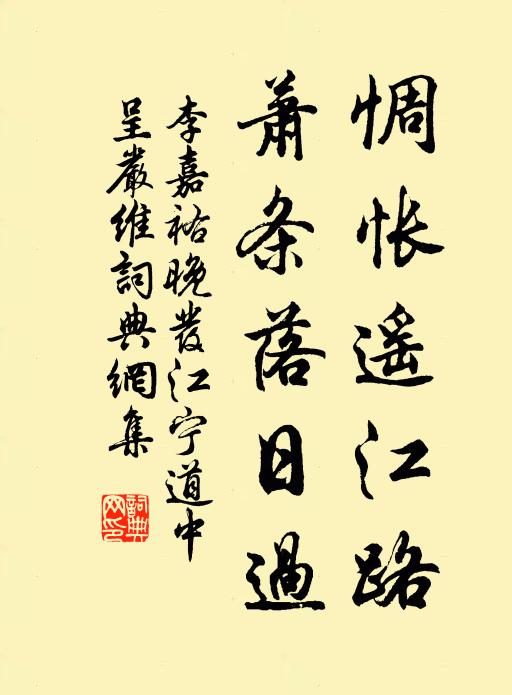 惆怅遥江路
萧条落日過
李嘉祐晚發江宁道中
呈嚴維詞典網集
詞典网印